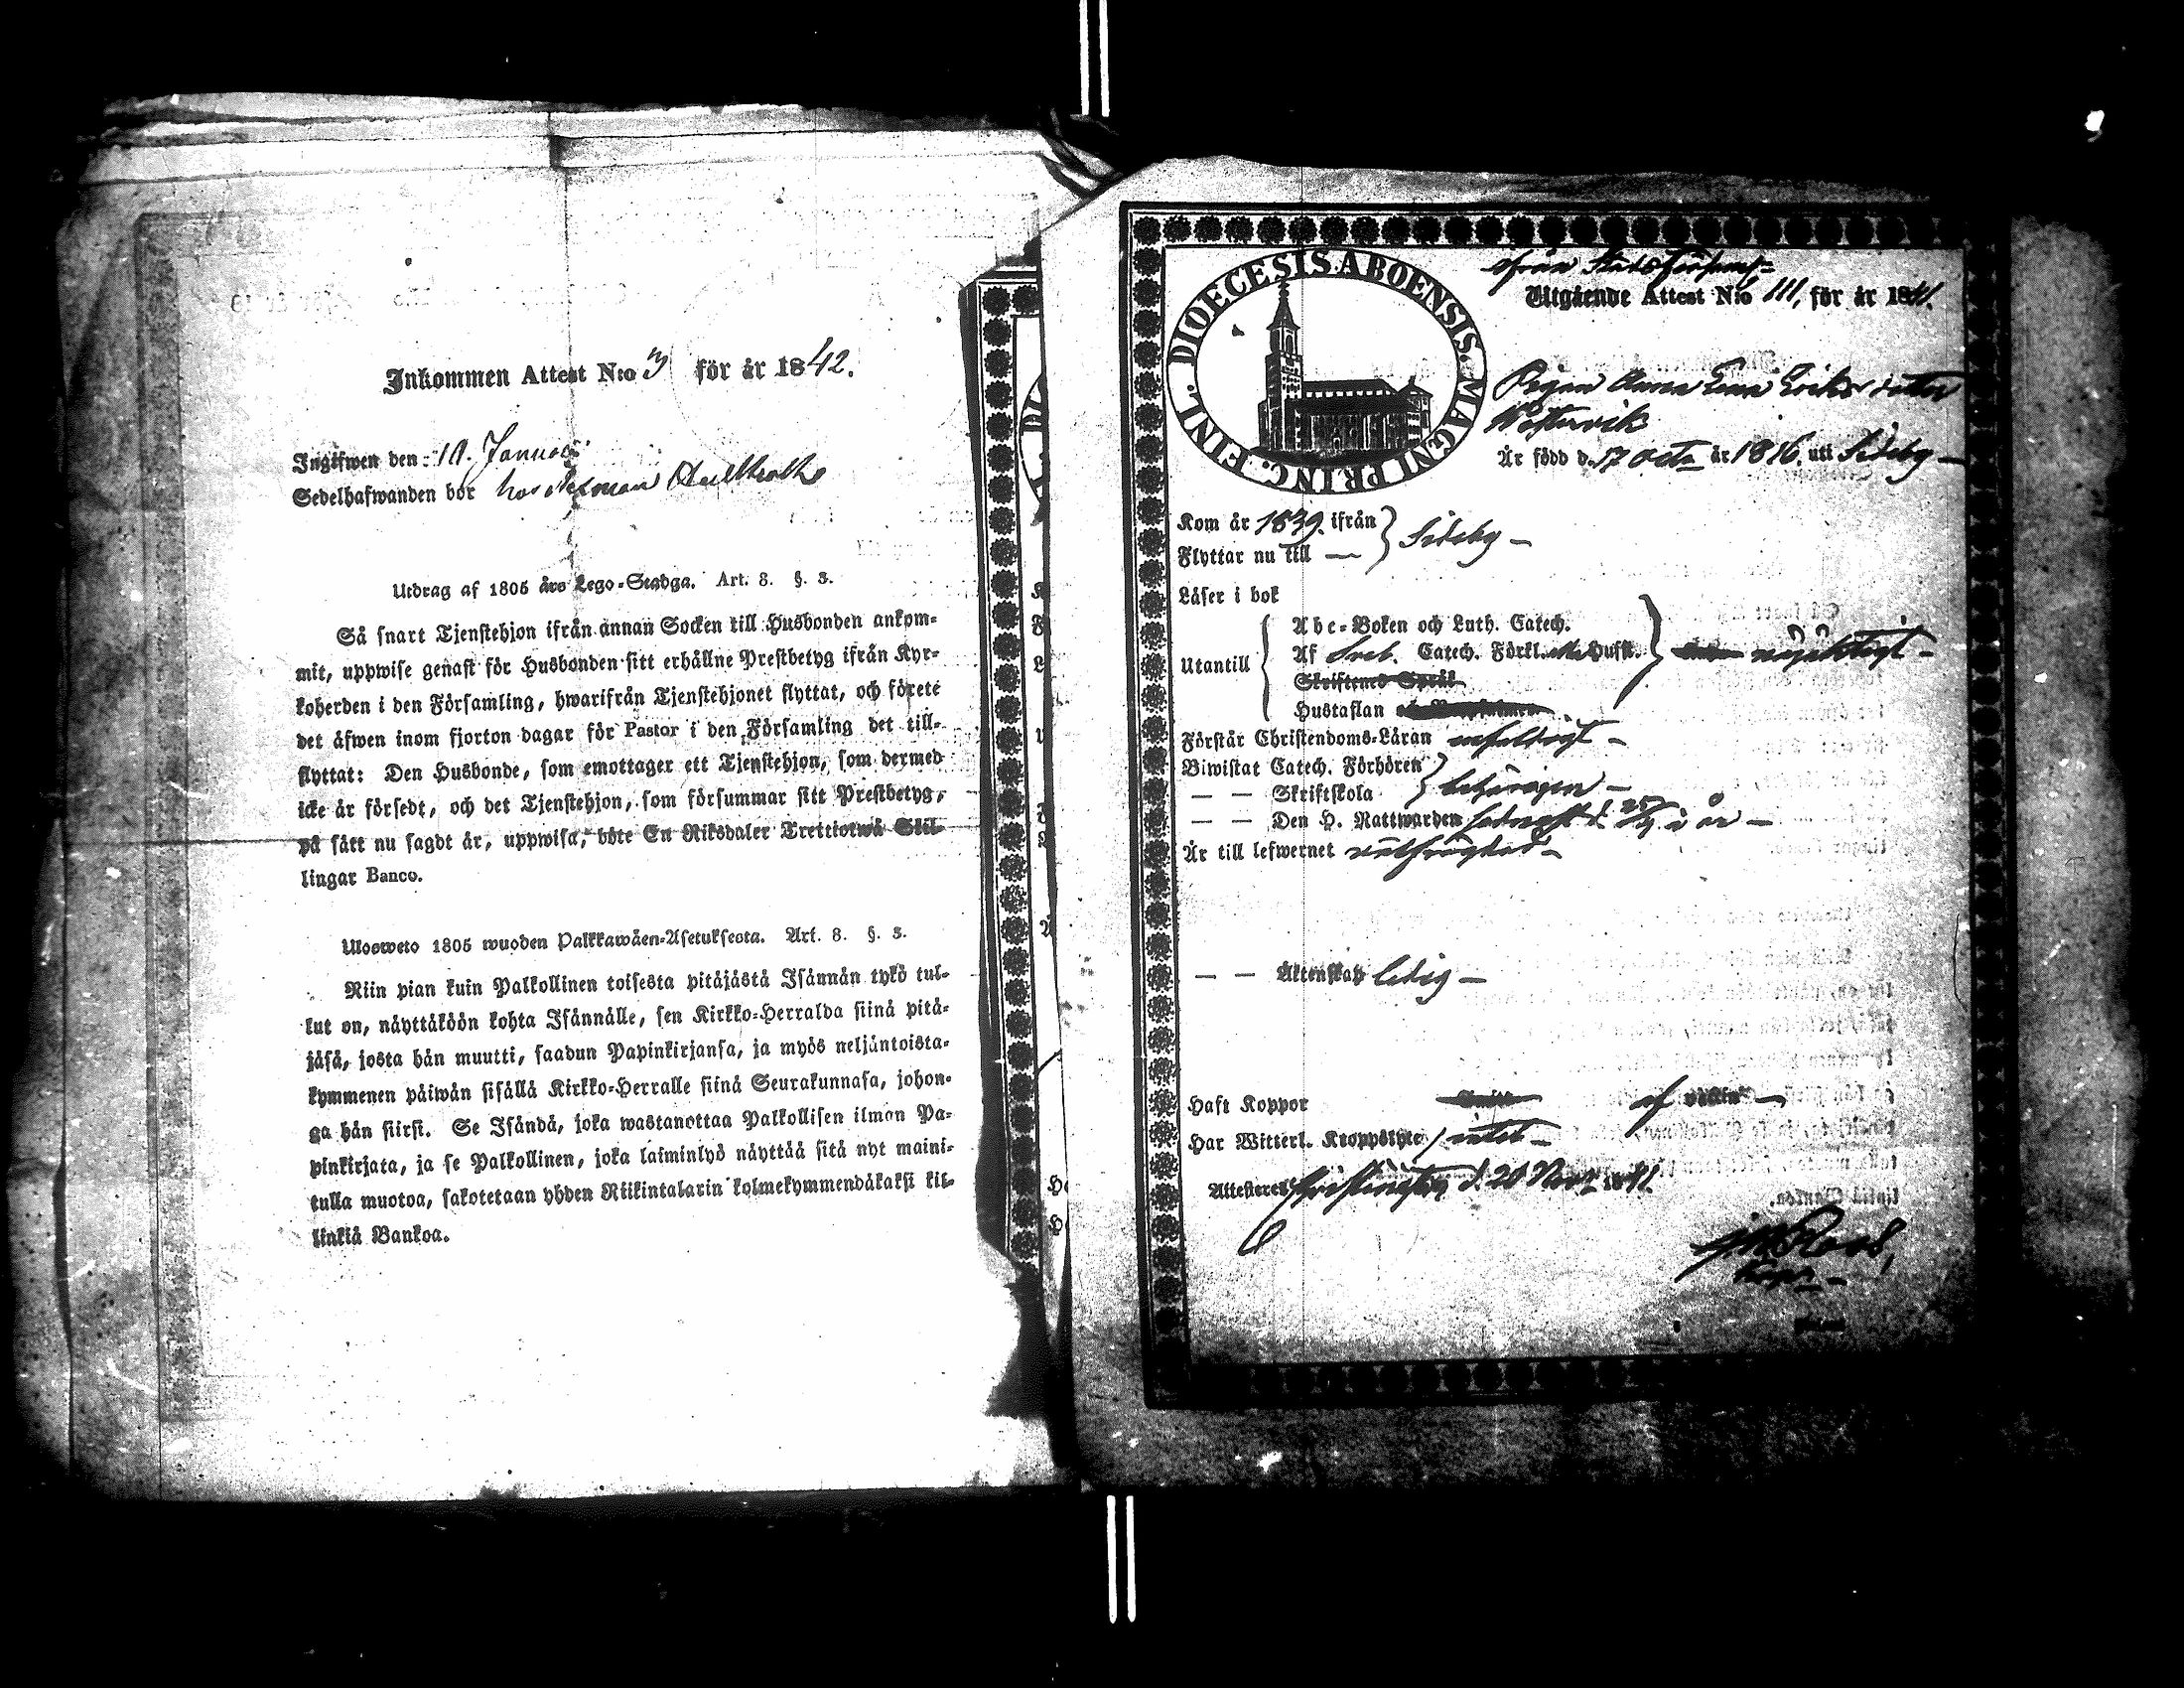 Inkommen Attest N:o 3 för år 1842.
Ingifwen den 10. Januari
Sedelhafwanden bor hos
Utdrag af 1805 års Lego-Stadga. Art. 8. §. 3.
Så snart Tjenstehjon ifrån annan Socken till Husbonden ankom-
mit, uppwise genast för Husbonden sitt erhållne Prestbetyg ifrån Kyr-
koherden i den Församling, hwarifrån Tjenstehjonet flyttat, och förete
det äfwen inom fjorton dagar för Pastor i den Församling det till-
flyttat: Den Husbonde, som emottager ett Tjenstehjon, som dermed
icke är försedt, och det Tjenstehjon, som försummar sitt Prestbetyg,
på sätt nu sagdt är, uppwisa, böte En Riksdaler Trettiotwå Skil-
lingar Banco.
Ulosweto 1805 wuoden Palkkawäen-Asetuksesta. Art. 8. §. 3.
Niin pian kuin Palkollinen toisesta pitäjästä Isännän tykö tul-
lut on, näyttäköön kohta Isännälle, sen Kirkko-Herralda siinä pitä-
jäsä, josta hän muutti, saadun Papinkirjansa, ja myös neljäntoista-
kymmenen päiwän sisällä Kirkko-Herralle siinä Seurakunnasa, johon-
ga hän siirsi. Se Isändä, joka wastanottaa Palkollisen ilman Pa-
pinkirjata, ja se Palkollinen, joka laiminlyö näyttää sitä nyt maini-
tulla muotoa, sakotetaan yhden Riikintalarin kolmekymmendäkaksi kil-
linkiä Bankoa.
DIOECESIS ABOENSIS. MAGNI PRINC. FINL.
ifrån Stads
Utgående Attest N:o 111, för år 1841.
Pigan Anna Lena Eriksdotter
Westervik
Är född d. 17 Oct. år 1816. uti Sideby
Kom år 1839. ifrån
Flyttar nu till — } Sideby —
Läser i bok
Abc-Boken och Luth. Catech.
Utantill
Af Sveb. Catech. Förkl. Husfl.
nöjaktigt —
Skriftenes Språk
Hustaflan
Förstår Christendoms-Läran enfaldigt —
Biwistat Catech. Förhören
— — Skriftskola } behörigen —
— — Den H. Nattwarden sednast d. 25/ i år —
Är till lefwernet välfrägdad —
— — Äktenskap ledig —
Haft Koppor
Har Witterl. Kroppslyte intet —
Attesteras Christinestad d. 20 Nov. 1841.
Roos,